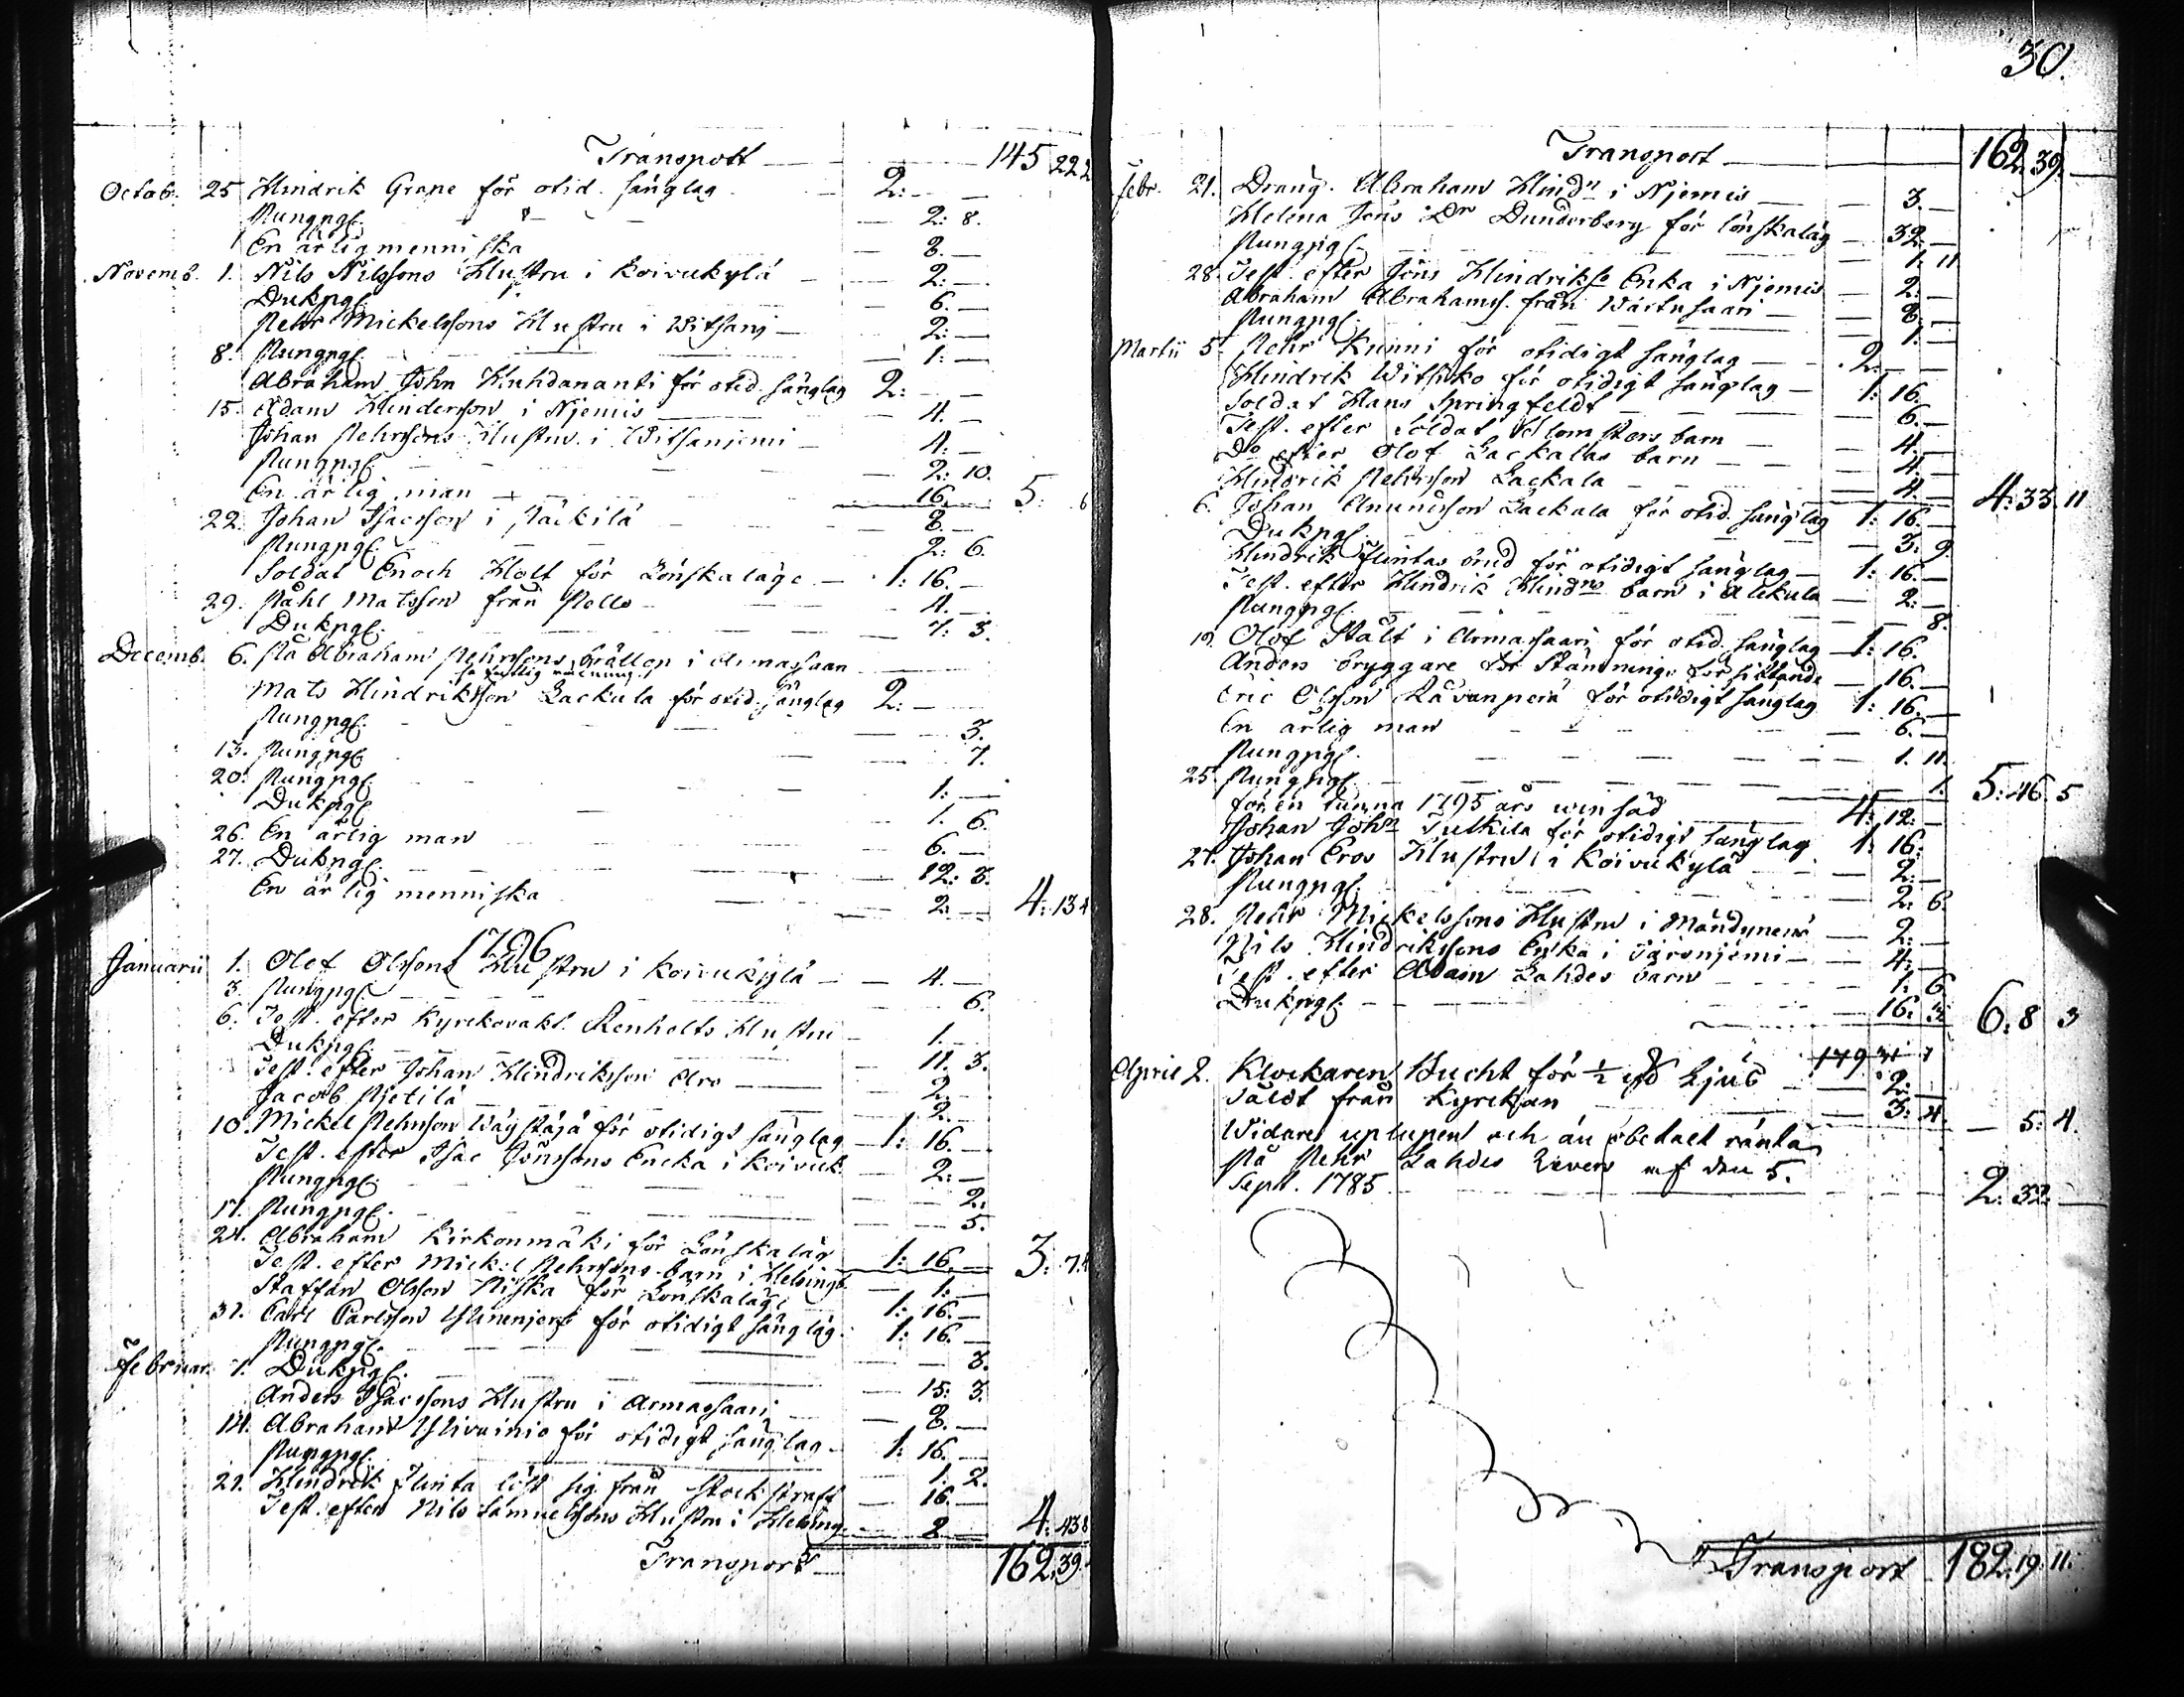 Transport — 145 22 2
Octob. 25 Hindrik Grape för otid. sänglag — 2: —
Pungpgr. — 2: 8.
En ärlig menniska — 8. —
Novemb. 1. Nils Nilssons Hustru i Koivukylä — 2: —
Dukpgr. — 6. —
Pehr Mickelssons Hustru i Witsanj — 2: —
8. Pungpgr. — 1: —
Abraham John Huhdananti för otid. sänglag 2: —
15. Adam Hinderson i Njemis — 4. —
Johan Pehrssons Hustru i Witsanjemi — 4: —
Pungpgr. — 2: 10.
En ärlig man — 16. — 5: 6
22. Johan Isacsson i Päckilä — 8. —
Pungpgr. — 2: 6.
Soldat Enoch Holt för Lönskaläge — 1: 16. —
29. Påhl Matsson från Pello — 4. —
Dukpgr. — 7: 3.
Decemb. 6. På Abraham Pehrssons bröllop i Armassaari
Mats Hindriksson Lackula för otid. sänglag 2: —
Pungpgr. — 3.
13. Pungpgr. — 7.
20. Pungpgr. — 1: —
Dukpgr. — 1. 6.
26. En ärlig man — 6. —
27. Dukpgr. — 12: 3.
En ärlig menniska — 2: — 4: 13 4
1796
Januarii 1. Olof Olssons Hustru i Koivukylä — 4. —
3. Pungpgr. — 6.
6. Test. efter Kyrckovakt. Renholts Hustru — 1. —
Dukpgr. — 11. 3.
Test. efter Johan Hindriksson Aro — 2. —
Jacob Pjetilä — 2. —
10. Mickel Pehrsson Wäystäjä för otidigt sänglag — 1: 16. —
Test. efter Isac Jönssons Encka i Koivuk. — 2: —
Pungpgr. — 2.
17. Pungpgr. — 5.
24. Abraham Kirkonmäki för Lönskaläg — 1: 16. — 3: 7.4
Test. efter Mickel Pehrssons barn i Helsingb. — 1: —
Staffan Olsson Niska för Lönskaläge — 1: 16. —
31. Carl Carlsson för otidigt sänglag. 1: 16. —
Pungpgr. — 3.
Februar. 7. Dukpgr. — 15: 3.
Anders Isacssons Hustru i Armassaari — 8. —
14. Abraham Ylivainio för otidigt sänglag — 1: 16. —
Pungpgr. — 1. 2.
21. Hindrik Junta löst sig från stockstraff — 16. —
Test. efter Nils Samuelssons Hustru i Helsing. — 8 — 4: 43 8
Transport — 162. 39.
30.
Transport — 162. 39. —
Febr. 21. Dräng. Abraham Hindn i Njemis — 3. —
Helena Jöns Dr Dunderberg för lönskaläg — 32. —
Pungpgr. — 1. 11
28. Test. efter Jöns Hindrikss. Enka i Njemis — 2: —
Abraham Abrahamss. från Wärtusaari — 8. —
Pungpgr. — 1. —
Martii 5. Pehr Kunni för otidigt sänglag — 2. —
Hindrik Withiko för otidigt sänglag — 1: 16.
Soldat Hans Springfeldt — 6. —
Test. efter Soldat Blomsters barn — 4. —
Do efter Olof Lackalas barn — 4. —
Hindrik Pehrsson Lackala — 4. — 4: 33. 11
6. Johan Amundsson Lackala för otid. sänglag 1: 16. —
Dukpgr. — 3. 9.
Hindrik Juntas brud för otidigt sänglag — 1: 16. —
Test. efter Hindrik Hindns barn i Alkula — 2: —
Pungpgr. — 8.
Olof Stålt i Armassaari för otid. sänglag — 1: 16.
Anders bryggare för Stämnings försittande — 16. —
Eric Olsson Råvanperä för otidigt sänglag 1: 16. —
En ärlig man — 6. —
Pungpgr. — 1. 11.
25. Pungpgr. — 1. 5: 46. 5
för en tunna 1795 års utsäd — 4: 12: —
Johan Johs Julkila för otidigt sänglag 1: 16:
27. Johan Eros Hustru i Koivukylä — 2: —
Pungpgr. — 2. 6.
28. Pehr Mickelssons Hustru i — 2: —
Nils Hindrikssons Enka i Järsnjemi — 4: —
Test. efter Adam Lahdes barn — 1: 6
Dukpgr. — 16. 3. 6: 8 3
Aprill 2. Klockaren Hucht för ½ ljus — 2: —
Såldt från Kyrckan — 3: 4. — 5: 4.
Widare uplupen och än obetalt ränta
på Pehr Lahdes Revers af den 5.
Sept. 1785 — 2: 32: —
Transport 182. 19. 11.